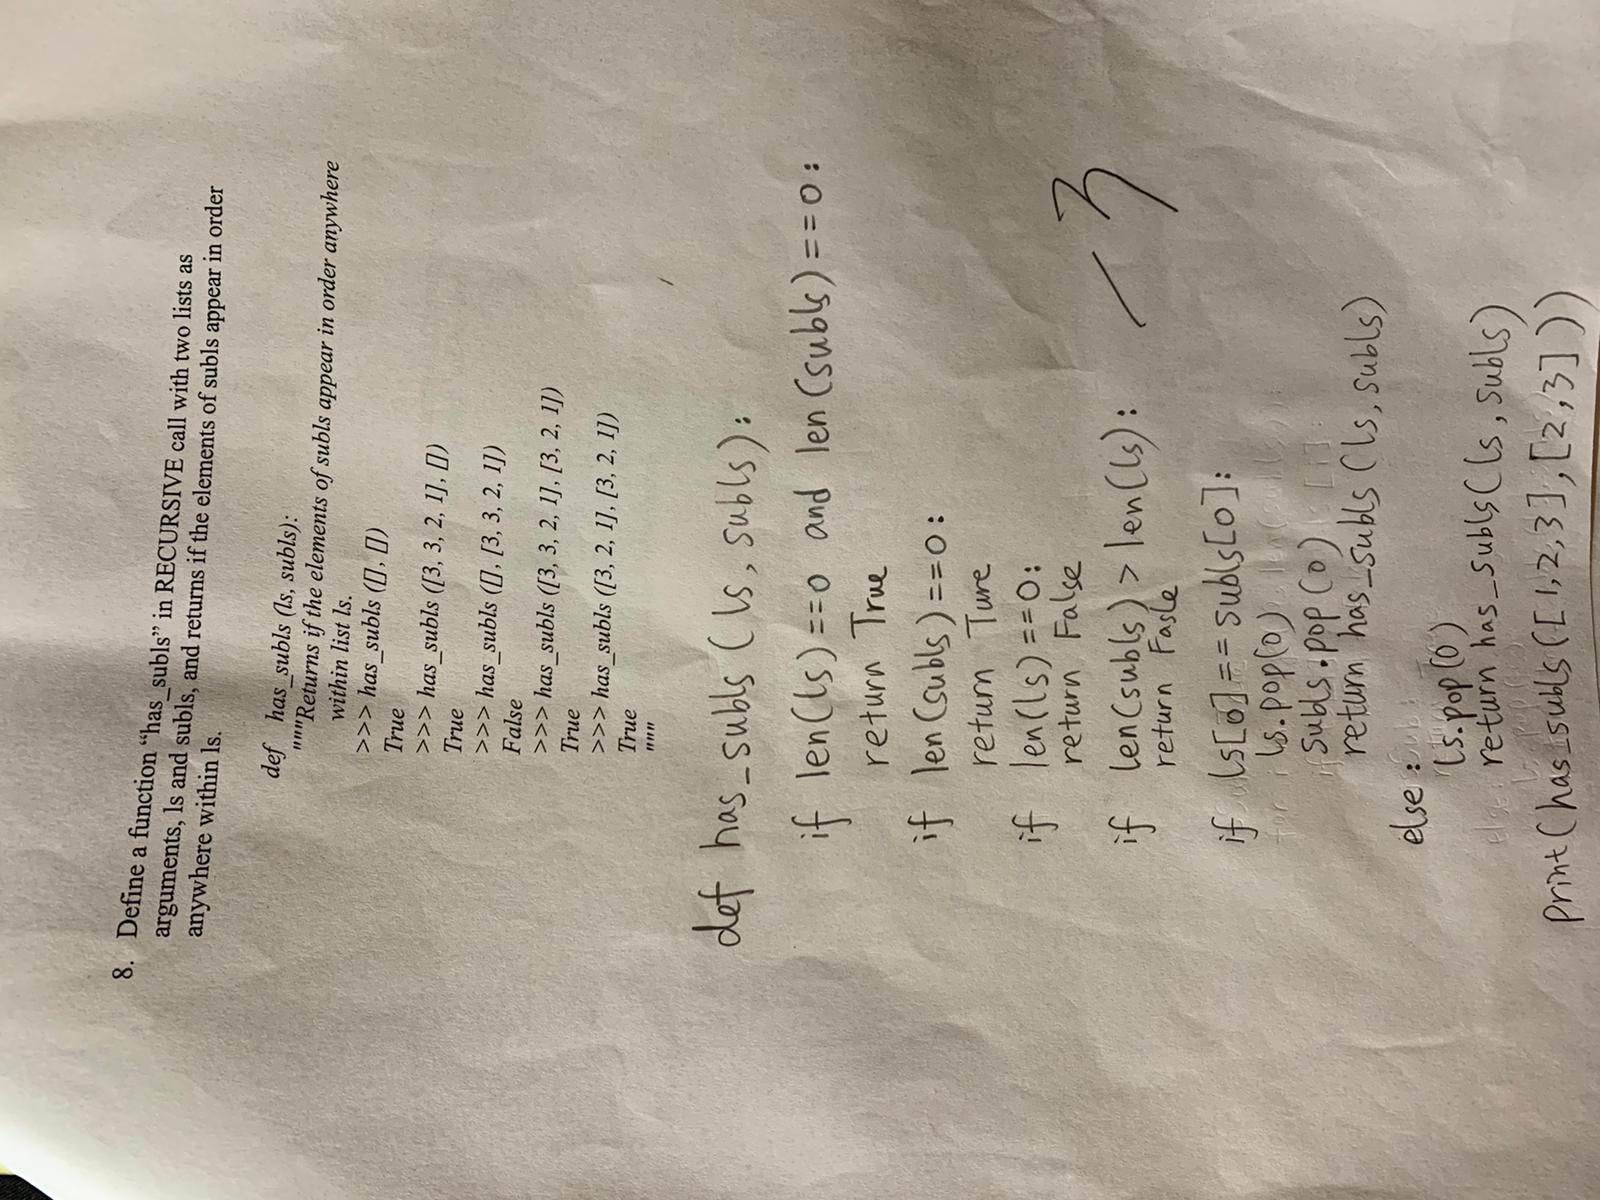 8. Define a function “has_subls” in RECURSIVE call with two lists as
arguments, ls and subls, and returns if the elements of subls appear in order
anywhere within ls.
def has_subls (ls, subls):
"""Returns if the elements of subls appear in order anywhere
within list ls.
>>> has_subls ([], [])
True
>>> has_subls ([3, 3, 2, 1], [])
True
>>> has_subls ([], [3, 3, 2, 1])
False
>>> has_subls ([3, 3, 2, 1], [3, 2, 1])
True
>>> has_subls ([3, 2, 1], [3, 2, 1])
True
"""
def has_subls (ls, subls):
if len(ls)==0 and len(subls)==0:
return True
if len(subls)==0:
return Ture
if len(ls)==0:
return False
if len(subls) > len(ls):
return Fasle
-3
if ls[0]== subls[0]:
ls.pop(0)
subls.pop(0)
return has_subls (ls, subls)
else:
ls.pop(0)
return has_subls(ls, subls)
print(has_subls([1,2,3],[2,3]))